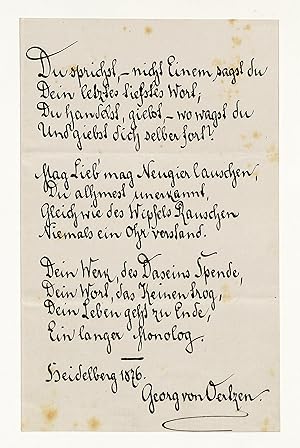 Du sprichst, – nicht Einem sagst du
Dein letztes tiefstes Wort;
Du handelst, giebst – wo wagst du
Und giebst dich selber fort?
Mag Lieb' mag Neugier lauschen,
Du athmest unerkannt,
Gleich wie des Wipfels Rauschen
Niemals ein Ohr verstand.
Dein Werk, des Daseins Spende,
Dein Wort, das Keinen trog,
Dein Leben geht zu Ende,
Ein langer Monolog.
Heidelberg 1876.
Georg von Oertzen.